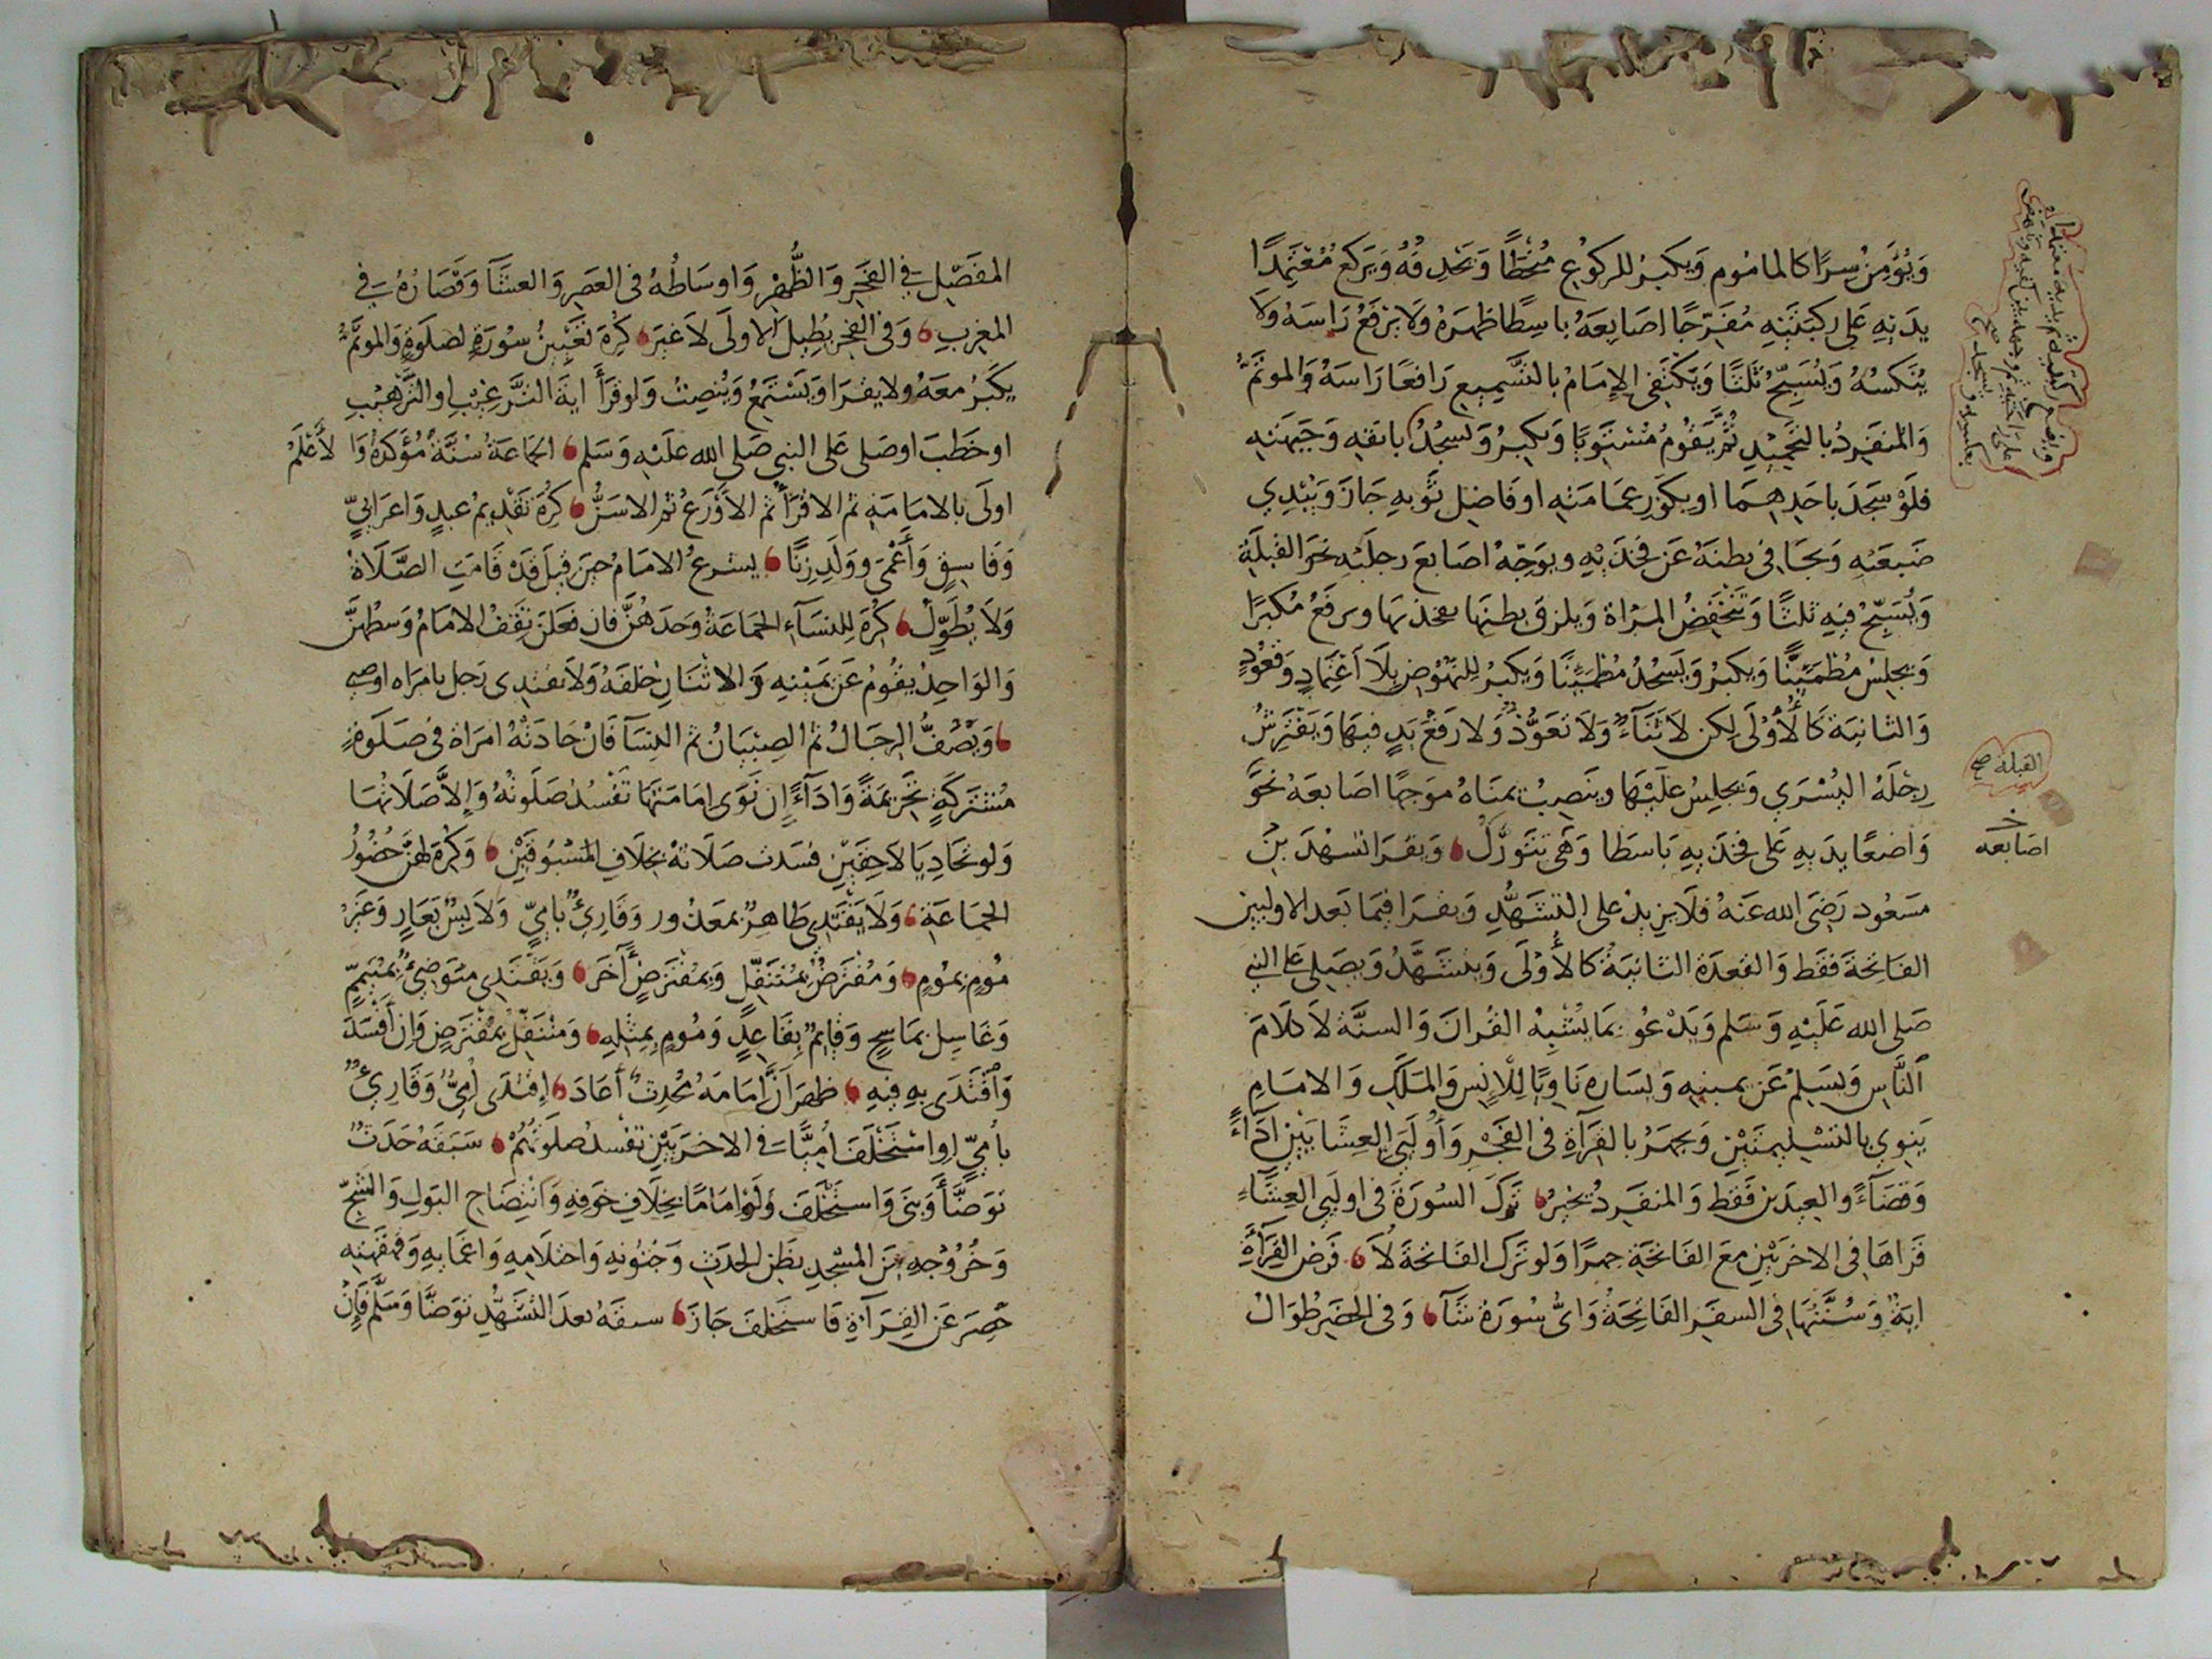 وَيُؤَمِّنُ سِرًا كالمامُوم وَيكبرُ للركُوعِ مُنحَطًّا وَيَحْدِفُهُ وَيَركع مُعْتَمِدًا
يدَيْهِ عَلى ركبَتَيْهِ مُفَرِّجًا اصَابِعَهُ باسِطًا ظهرَهُ وَلا يَرْفَعُ رَاسَهُ وَلا
يُنَكسُهُ وَيُسَبِّحُ ثَلثًا وَيَكْتَفِى الإِمَامُ بالتَّسْمِيعِ رَافعًا رَاسَهُ وَالموتَمُّ
وَالمنفَرِدُ بالتحْمِيْدِ ثُمَّ يَقُومُ مُسْتَوِيًا وَيكبِرُ وَيَسجُدُ بانفِهِ وَجَبهَتِهِ
فلَوْ سَجَدَ باحَدِهِمَا او بِكَوْرِ عمَامَتِهِ او فَاضِل ثَوْبهِ جَازَ وَيُبْدِي
ضَبعَيْهِ وَيجَافِى بطنَهُ عَن فَخذَيْهِ ويوَجِّهُ اصَابعَ رجلَيْهِ نحوَ القِبلَةِ
وَيُسَبِّحُ فِيهِ ثلثًا وَتَنْخَفِضُ المَرْاة وَيلزق بطنهَا بفخذيهَا ويرفَعُ مُكبرًا
وَيجلِسُ مُطْمَئِنًّا وَيكبرُ وَيَسجُدُ مُطْمَئِنًا وَيكبرُ لِلنهُوْضِ بِلَا اعْتِمَادٍ وَقعُوْدٍ
وَالثانيَة كَالأُوْلَى لكِن لا ثَنَآءٌ وَلا تعَوُّذٌ وَلا رَفعُ يَدٍ فيهَا وَيَفْتَرِشُ
رِجْلَهُ اليُسْرَي وَيجلِسُ عَلَيْهَا وينَصِبُ يمنَاهُ موَجهًا اصَابعَهُ نحْوَ
القبلة صح
وَاضعًا يدَيهِ عَلى فخذَيهِ بَاسطَا وَهْىَ تتَوَرَّكُ وَيقرَا تشهّدَ بن
اصَابعه
مَسعُود رَضِىَ الله عَنهُ فلَا يَزِيدُ على التشَهُّدِ وَيقرَا فيمَا بَعد الاوليين
الفَاتحَةَ فَقَط وَالقعدَة الثانيَة كالأُوْلَى وَيتشَهَّدُ وَيصَلِى عَلى النبي
صَلى الله عَلَيْهِ وَسَلم وَيَدْعُو بمَا يُشْبِهُ القُرانَ وَالسنَّة لا كلَامَ
النَّاسِ وَيسَلِمُ عَن يمينِهِ وَيسَارِهِ نَاوِيًا لِلإنسِ وَالمَلَكِ وَالامَامِ
يَنوِي بالتسْلِيمتَيْنِ وَيجهَرُ بالقرَآةِ فى الفَجْرِ وَأُوْلَيَي العِشَايَيْنِ ادَآءً
وَقضَآءً والعِيدَين فَقَط وَالمنفَردُ يخيرُ تَركَ السُورَة فى اولَيي العِشَآءِ
قرَاهَا فى الاخرَيَيْنِ معَ الفَاتحَةِ جهرًا وَلو ترَك الفَاتحَة لَا فَرض القِرَآةِ
ايَة وَسُنّتُهَا فى السفَر الفَاتِحَةُ وَاىُّ سُورَة شآ وَفى الحَضَر طُوَالُ
المفَصّلِ فى الفَجَرِ وَالظُّهْرِ وَاوسَاطُهُ فى العَصَرِ وَالعشَآ وَقصَارُهُ فى
المغربِ وَفى الفَجرِ يُطِيلُ الاولَى لاَ غيرَ كُرِهَ تَعْيِينُ سُورَةٍ لصلَوةٍ وَالموتَمُّ
يكَبِّرُ معَهُ ولا يقرَا وَيَسْتمَعُ وَيُنصِتُ وَلو قرَأَ ايَة الترَّغِيْبِ او التَّرهِيْبِ
او خَطبَ او صَلى عَلى النبي صَلى الله علَيْهِ وَسَلم الجَماعَةُ سُنّةٌ مُؤَكَدَةٌ وَالأَعْلَمُ
اولَى بالامَامَةِ ثم الاقْرَأُ ثم الاَوْرَعُ ثم الاسَنُّ كُرِهَ تَقْدِيمُ عبدٍ وَاعرَابيٍّ
وَفَاسِقٍ وَأَعْمَى وَوَلَدِ زِنًا يشرعُ الامَامُ حِينَ قِيلَ قَدْ قَامَتِ الصَّلَاةُ
وَلَا يُطَوِّلُ كُرِهَ لِلنسَآءِ الجمَاعَةُ وَحدَهُنَّ فَان فَعَلنَ يَقفُ الامَامُ وَسطَهُنَّ
وَالوَاحِدُ يقُومُ عَن يَمِيْنِهِ وَالاثنَانِ خلفَهُ وَلا يَقتدِى رَجل بامرَاه او صبي
وَيَصُفُّ الرجَالُ ثم الصِبْيَانُ ثم النِسَآ فَانْ حَاذَتْهُ امرَاة فى صَلَوةٍ
مُشْتَرَكَةٍ تَحْرِيمَةً وَادَآءً إِن نَوَى امَامَتهَا تَفْسُدُ صَلَوتُهُ وَإلاَّ صَلَاتُهَا
وَلو تحَاذِيَا لاَحِقَيْنِ فسَدت صَلَاتهُ بخِلَافِ المَسْبُوقَيْنِ وَكُرِهَ لهُنَّ حُضُوْرُ
الجمَاعَةِ وَلَا يَقْتَدِى طَاهِرٌ بمَعذُور وَقَارِئٌ بأُمِّيٍّ وَلاَبِسٌ بعَارٍ وَغَيرُ
مُومٍ بمُومٍ وَمُفْتَرَضٌ بمُتَنَفِّلٍ وَبمُفْتَرَضٍ آخَرَ وَيَقْتَدِى مُتوَضِئٌ بمُتيَمِّمٍ
وَغَاسِل بمَاسِحٍ وَقَائِمٌ بِقَاعِدٍ وَمُومٍ بِمِثلِهِ وَمُتنَفِّلٌ بمُفْتَرَضٍ وَان أَفْسَدَ
وَاقْتَدَى بهِ فِيهِ ظَهَرَ أَنَّ امَامَهُ مُحْدِثٌ أَعَادَ اِقْتَدَى أُمِّيٌّ وَقَارِئٌ
بأُمِّيٍّ او استَخْلَفَ أُمِّيًّا فى الاخرَيَيْنِ تفسُدُ صلَوتُهُمْ سَبَقَهُ حَدَثٌ
تَوَضَّأَ وَبَنَى وَاستَخْلَفَ وَلَوْ امَامًا بخِلَافِ خَوفِهِ وَانتِضَاحِ البَولِ وَالشجِّ
وَخُرُوْجِهِ مِنَ المَسْجدِ بظَنِ الحدَثِ وَجُنُونِهِ وَاحتلَامِهِ وَاغمَايِهِ وَقهقَهتِهِ
حَصِرَ عَنِ القِرَآةِ فَاستَخلفَ جَازَ سبقَهُ بعدَ التشَهُّدِ تَوَضَّا وَسَلَّمَ فَإِنْ